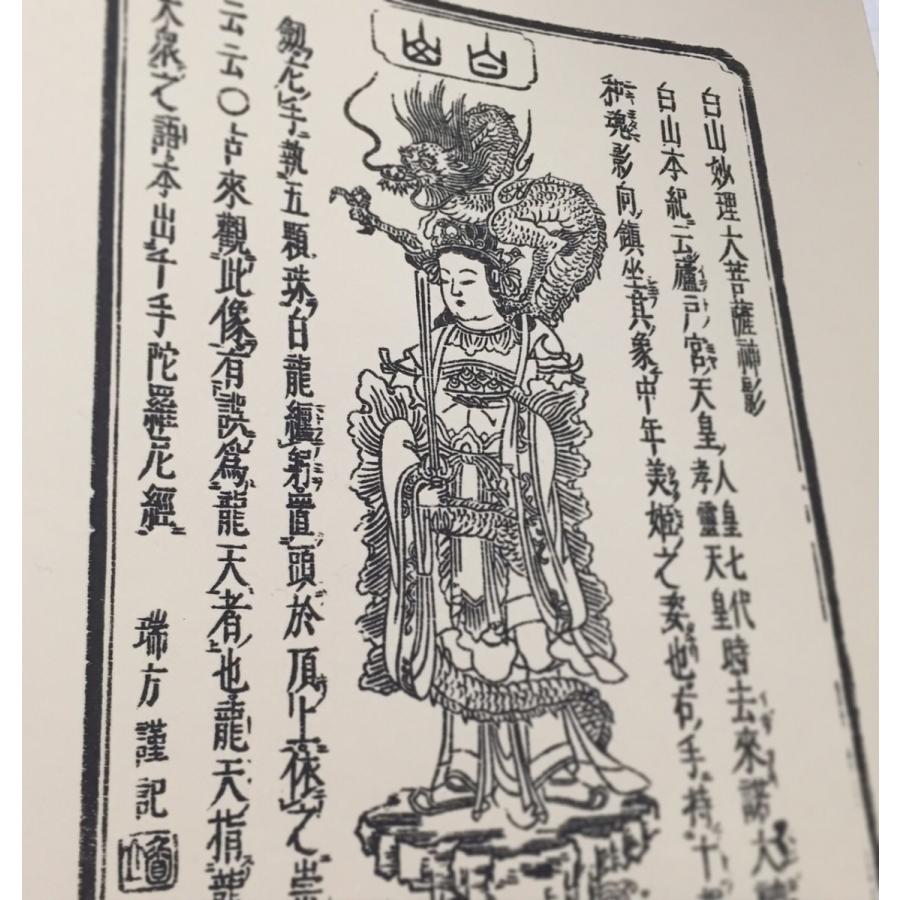 白山
白山妙理大菩薩神影
白山本紀云蘆戸宮天皇人皇七代孝靈天皇時去來諾大
和魂影向鎮坐其象中年美姫之姿也右手持十
劔左手執五顆珠白龍纏躬置頭於頂上依之
云云〇古來觀此像有誤爲龍天者也龍天指龍
天衆之語本出千手陀羅尼經 瑞方謹記